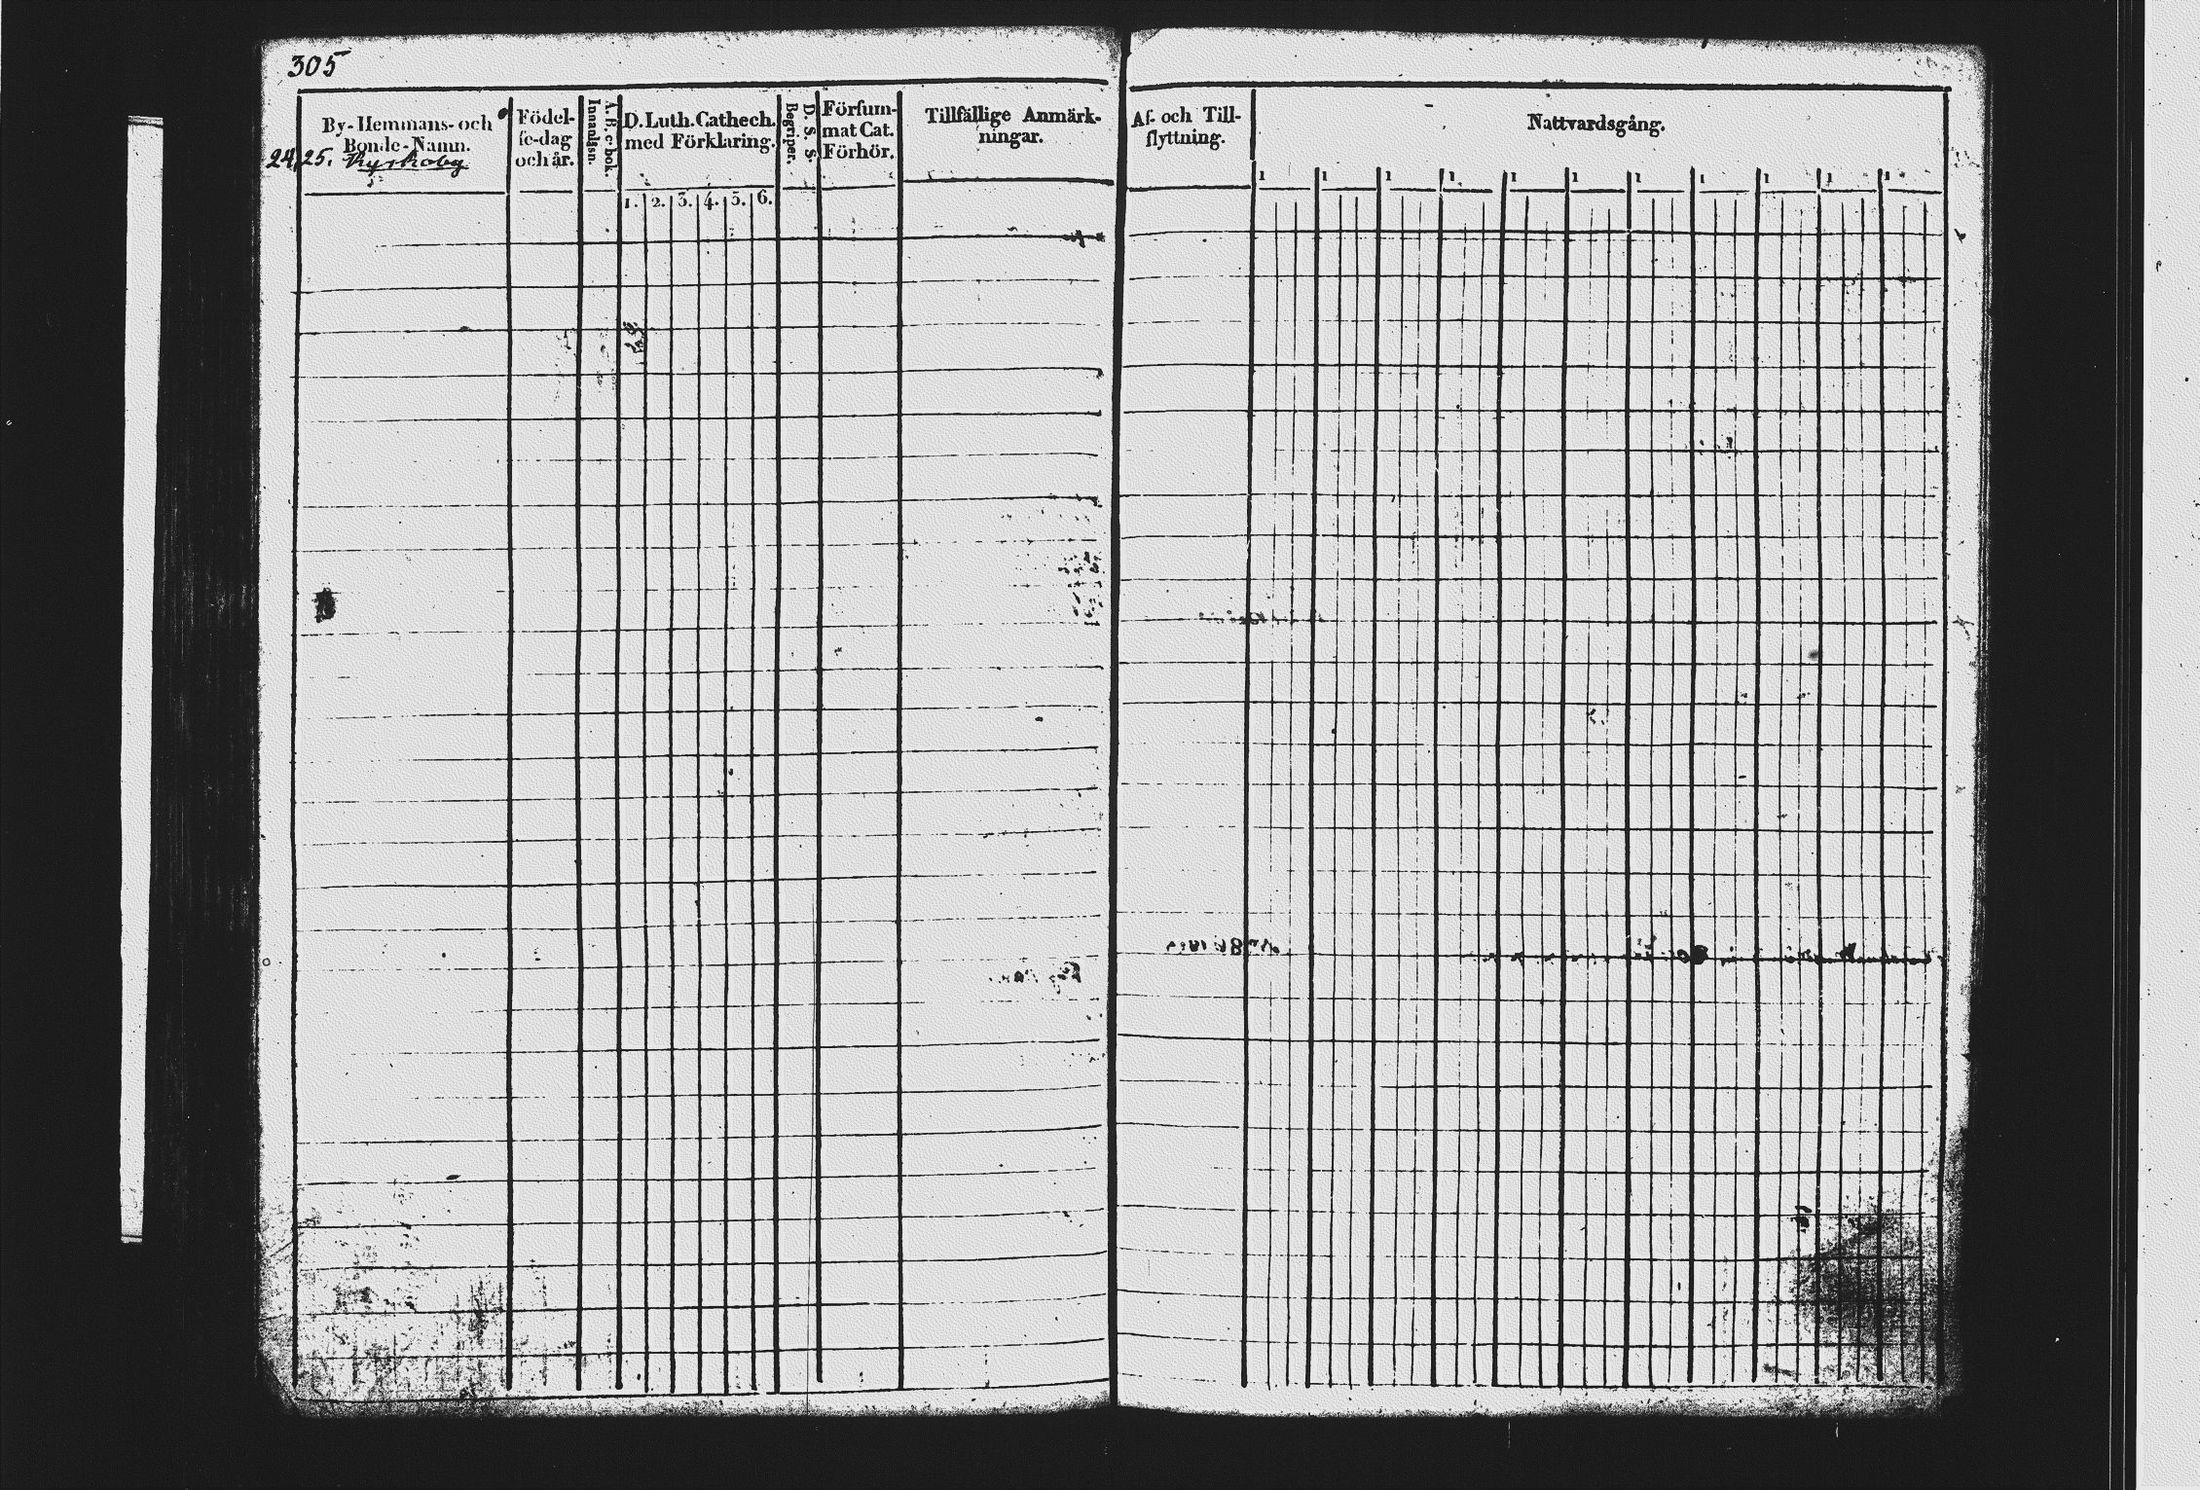 305
By-Hemmans- och
Bonde-Namn.
24, 25. Kyrkoby
Födel-
se-dag
och år.
A. B. c bok.
Innanläsn.
D. Luth. Cathech.
med Förklaring.
1. 2. 3. 4. 5. 6.
D. S. S.
Begriper.
Försum-
mat Cat.
Förhör.
Tillfällige Anmärk-
ningar.
Af- och Till-
flyttning.
Nattvardsgång.
1 1 1 1 1 1 1 1 1 1 1